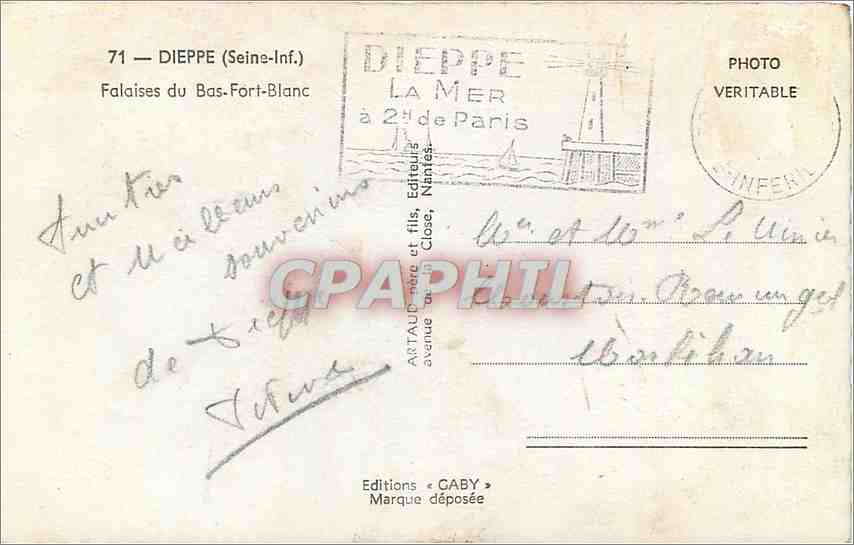 71 — DIEPPE (Seine-Inf.)
Falaises du Bas-Fort-Blanc
DIEPPE
LA MER
à 2H de Paris
PHOTO
VERITABLE
INFERI
et Meilleurs
souvenirs
de Dieppe
ARTAUD père et fils, Editeurs
avenue de la Close, Nantes.
CPAPHIL
et Mme Le
Morbihan
Editions « GABY »
Marque déposée